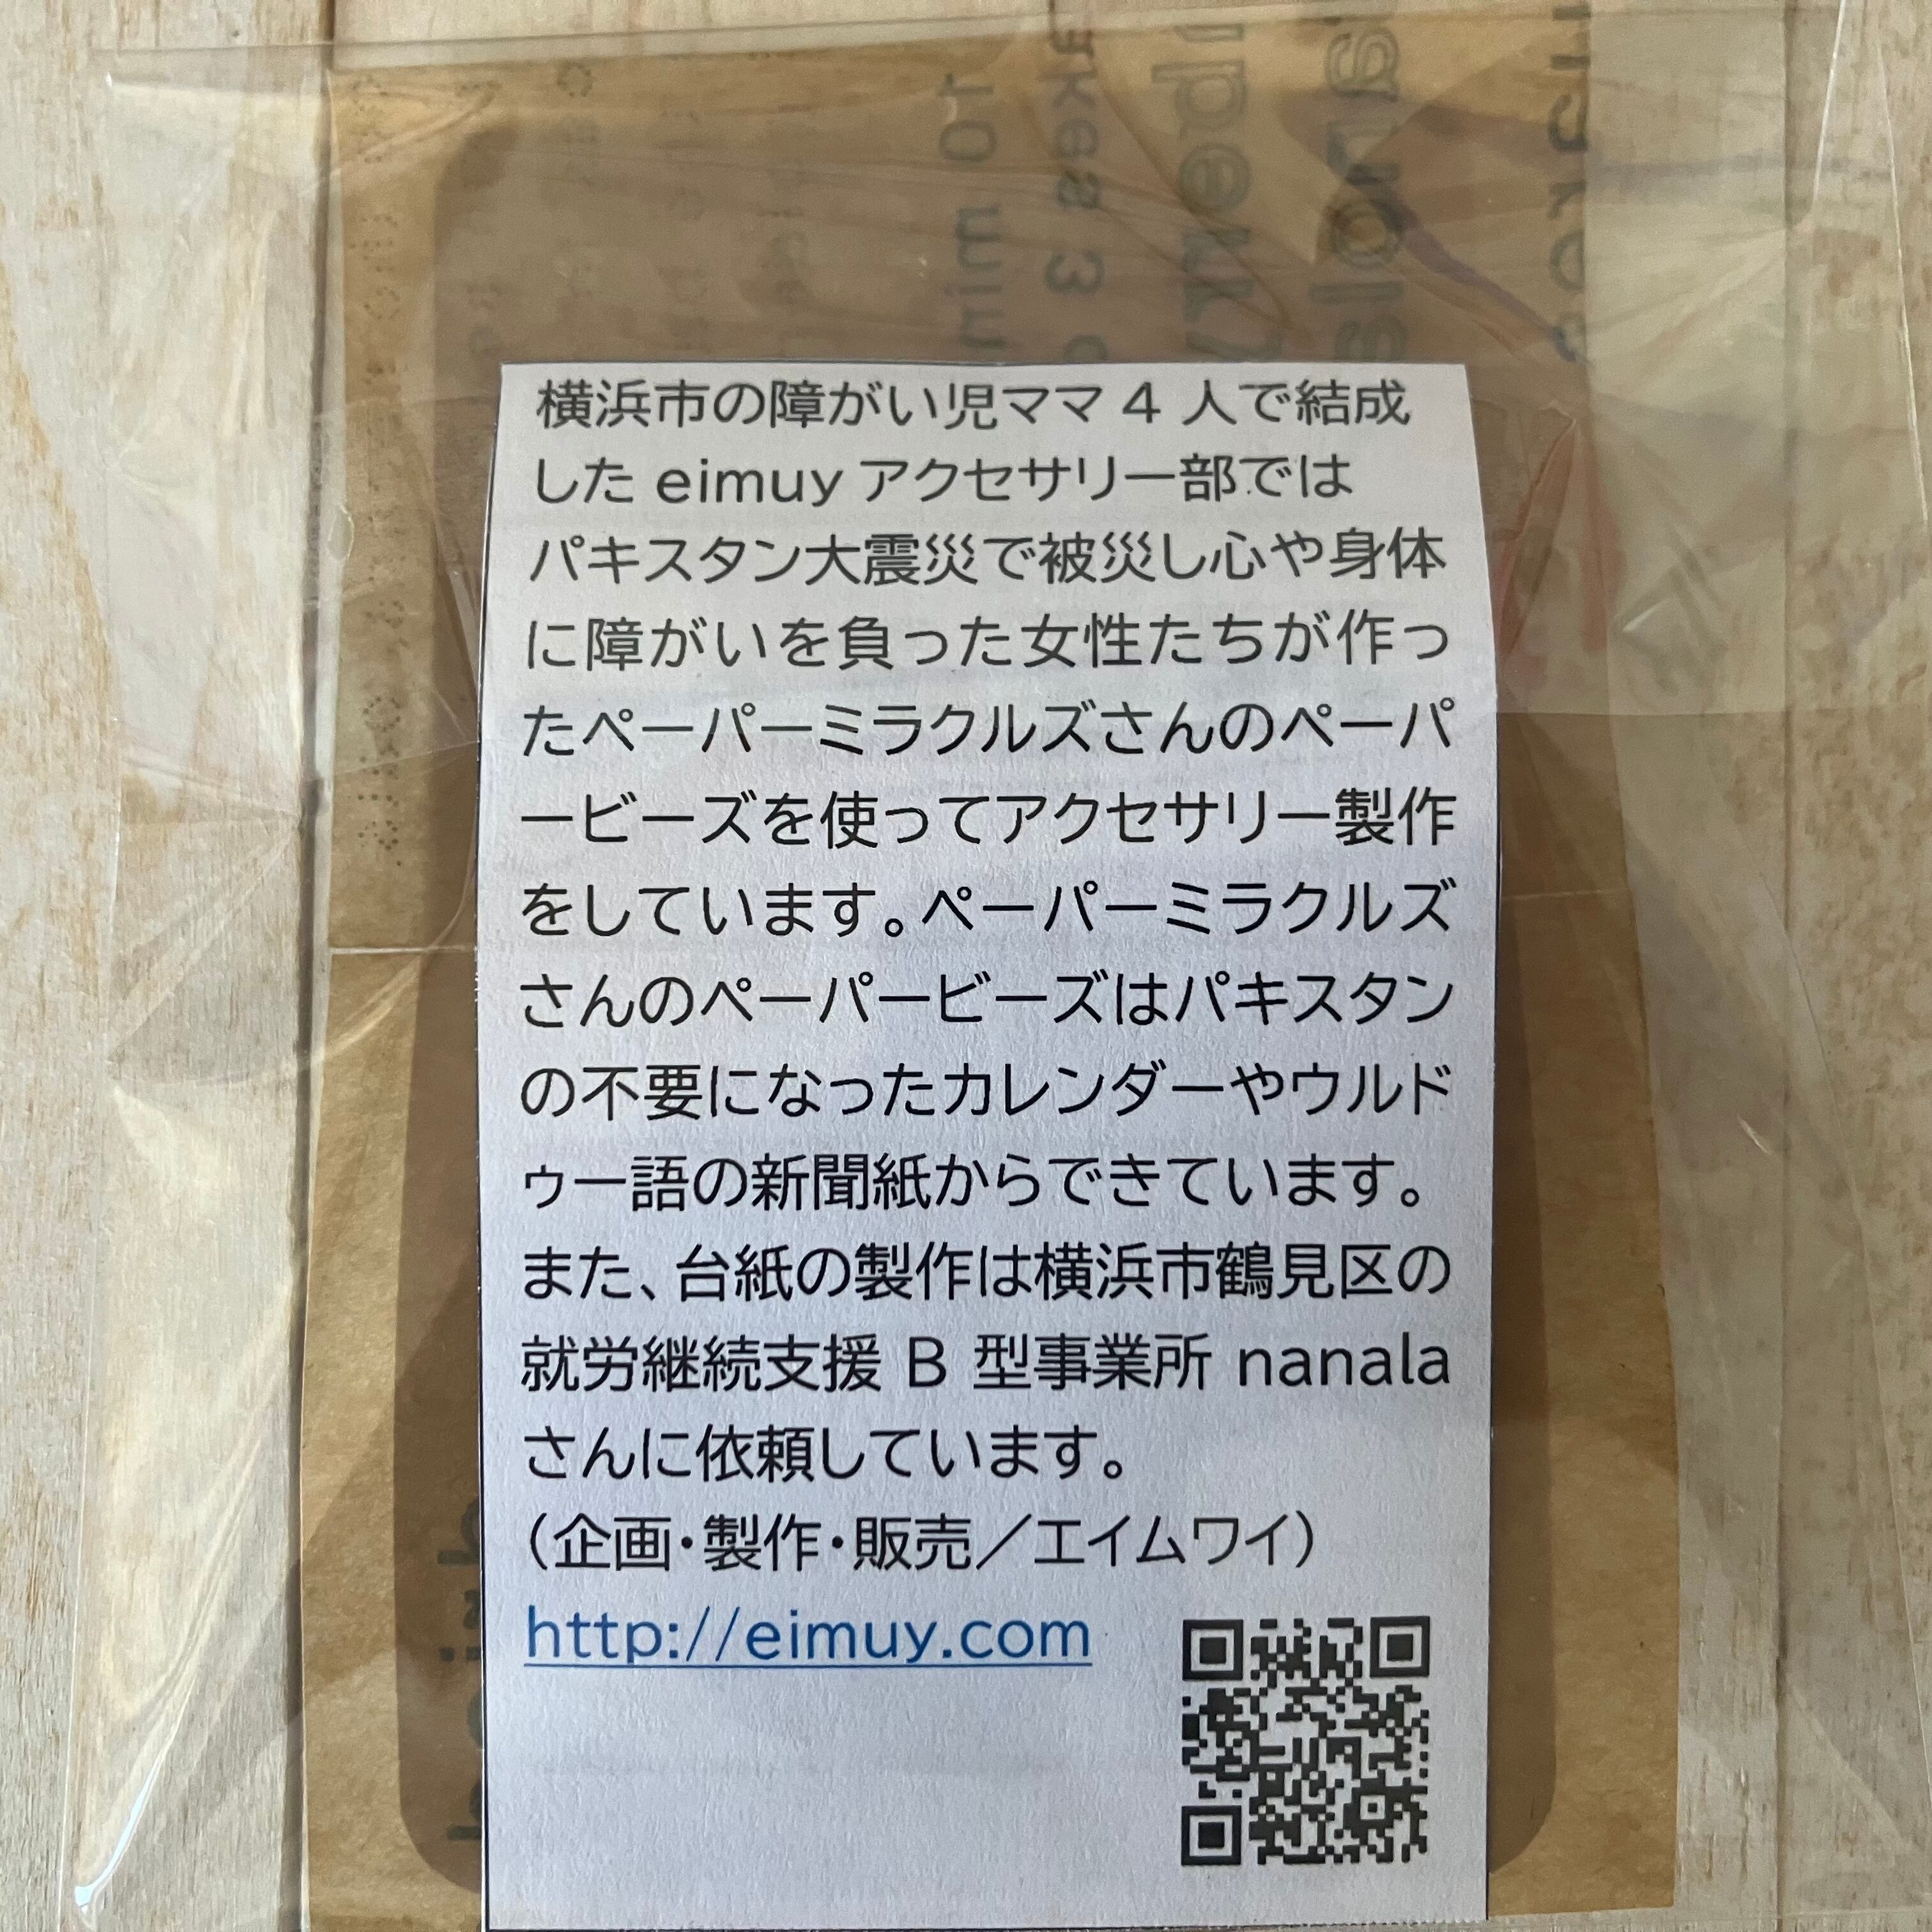 横浜市の障がい児ママ 4 人で結成
した eimuy アクセサリー部では
パキスタン大震災で被災し心や身体
に障がいを負った女性たちが作っ
たペーパーミラクルズさんのペーパ
ービーズを使ってアクセサリー製作
をしています。ペーパーミラクルズ
さんのペーパービーズはパキスタン
の不要になったカレンダーやウルド
ゥー語の新聞紙からできています。
また、台紙の製作は横浜市鶴見区の
就労継続支援 B 型事業所 nanala
さんに依頼しています。
（企画・製作・販売／エイムワイ）
http://eimuy.com